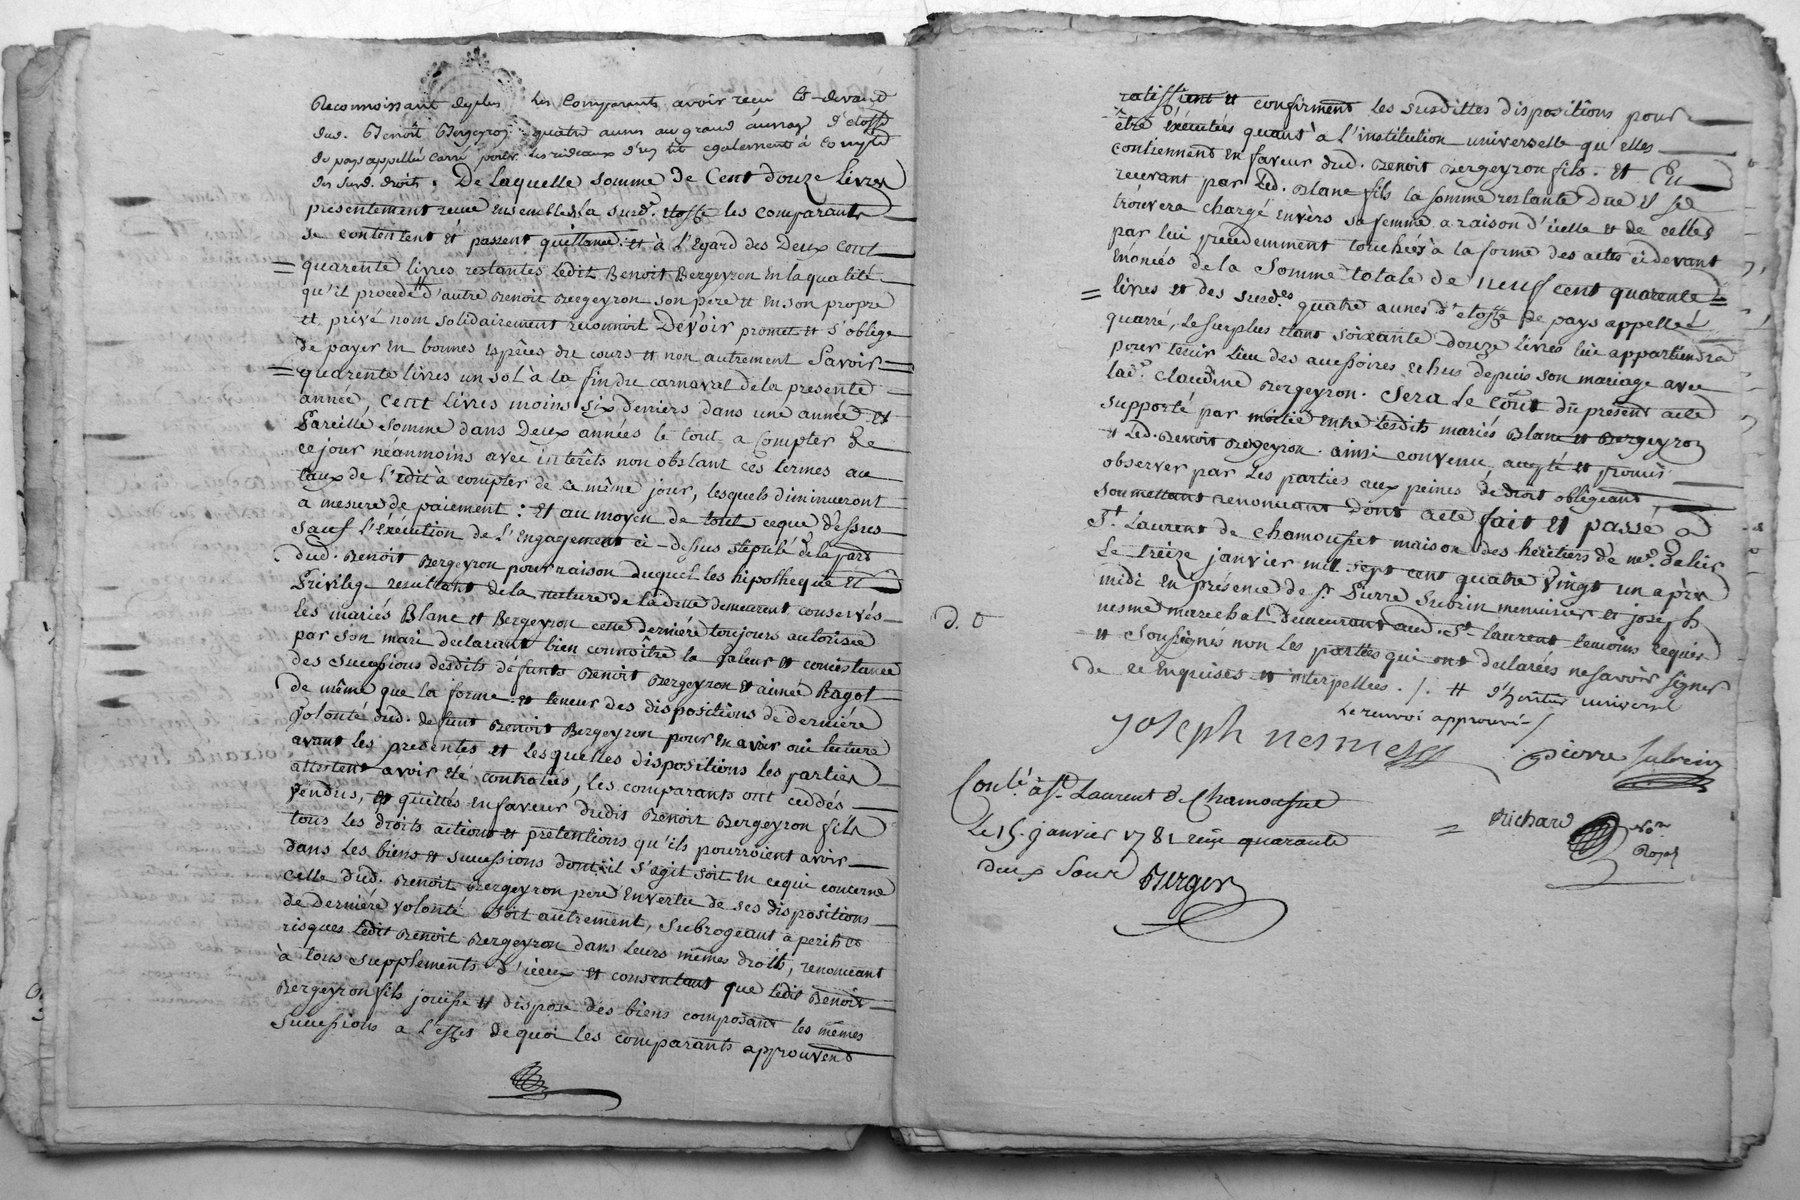 Reconnoissant deplus les Comparants avoir recu Ci-devant
dud. Benoît Bergeyron quatre aunes au grand aunage d'étoffe
du pays appellée Carré pour les rideaux d'un lit egalement à Compte
des susd. droits. De laquelle somme de Cent douze livres
presentement recue ensemble la susd.e etoffe les comparants
se contentent et passent quittance. et à l'Egard des Deux Cent
quarente livres restantes Ledit Benoit Bergeyron en la qualité
qu'il procede # d'autre Benoit Bergeyron son pere et en son propre
et privé nom solidairement reconnoit Devoir promet et s'oblige
de payer en bonnes espèces du cours et non autrement Savoir
quarente livres un sol à la fin du carnaval de la presente
année, Cent livres moins six deniers dans une année et
Pareille somme dans Deux années le tout a Compter de
ce jour néanmoins avec interêts non obstant ces termes au
taux de l'edit à compter de ce même jour, lesquels diminueront
a mesure de paiement : Et au moyen de tout ceque dessus
Sauf l'exécution de l'Engagement ci-dessus stipulé de la part
dud. Benoit Bergeyron pour raison duquel les hipotheque et
Privilege resultant de la nature de la dette demeurent conservés
les mariés Blanc et Bergeyron cette derniére toujours autorisée
par son mari declarant bien connoître la Valeur et consistance
des successions desdits défunts Benoit Bergeyron et aimée Ragot
de même que la forme et teneur des dispositions de derniére
Volonté dud. defunt Benoit Bergeyron pour en avoir oui lecture
avant les presentes et lesquelles dispositions les parties
attestent avoir été controlées, les comparants ont ceddés
vendus, et quittés en faveur dudit Benoit Bergeyron fils
tous les droits actions et prétentions qu'ils pourroient avoir
dans les biens et successions dont il s'agit soit en cequi concerne
celle dud. Benoit Bergeyron pere en vertu de ses dispositions
de derniére volonté soit autrement, subrogeant à perils et
risques ledit Benoit Bergeyron dans leurs mêmes droits, renonceant
à tous supplements d'iceux et consentant que ledit Benoit
Bergeyron fils jouisse et dispose des biens composant les mêmes
Successions a l'effet de quoi les comparants approuvent
ratiffient et confirment les susdittes dispositions pour
être exécutées quant à l'institution universelle qu'elles
contiennent en faveur dud. Benoit Bergeyron fils. et En
recevant par led. Blanc fils la somme restante due il se
trouvera chargé envers sa femme a raison d'icelle et de celles
par lui précedemment touchées à la forme des actes ci devant
énoncés de la Somme totale de neuf cent quarente
livres et des susd.es quatre aunes d'etoffe de pays appellée
quarré, le surplus etant soixante douze livres lui appartiendra
pour tenir lieu des accessoires echus depuis son mariage avec
lad.e Claudine Bergeyron. sera Le Coût du présent acte
supporté par moitié entre lesdits mariés Blanc et Bergeyron
et Led. Benoit Bergeyron. ainsi convenu accepté et promis
observer par les parties aux peines de droit obligeant
soumettant renoncant dont acte fait et passé à
St. Laurent de chamousset maison des heritiers de me.
Le treize janvier mil sept cent quatre Vingt un après
midi en présence de sr. Pierre Subrin menuisier et joseph
nesme marechal Demeurant aud. St. laurent temoins requis
et Soussignés non les parties qui ont declarées ne savoir signer
de ce enquises et interpellees. /. # d'héritier universel
Le renvoi approuvé /
joseph nesme
pierre subrin
d. O
Conlé à St. Laurent d. Chamousset
Le 15. janvier 1781 reçu quarante
deux sous Berger
= Richard
No.re
Royal